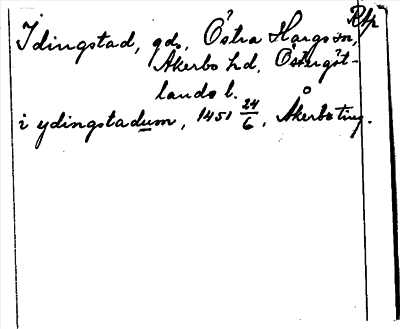 Rtp
Idingstad, gd., Östra Hargs sn,
Åkerbo hd, Östergöt-
lands l.
i ydingstadum, 1451 24/6, Åkerbo ting.